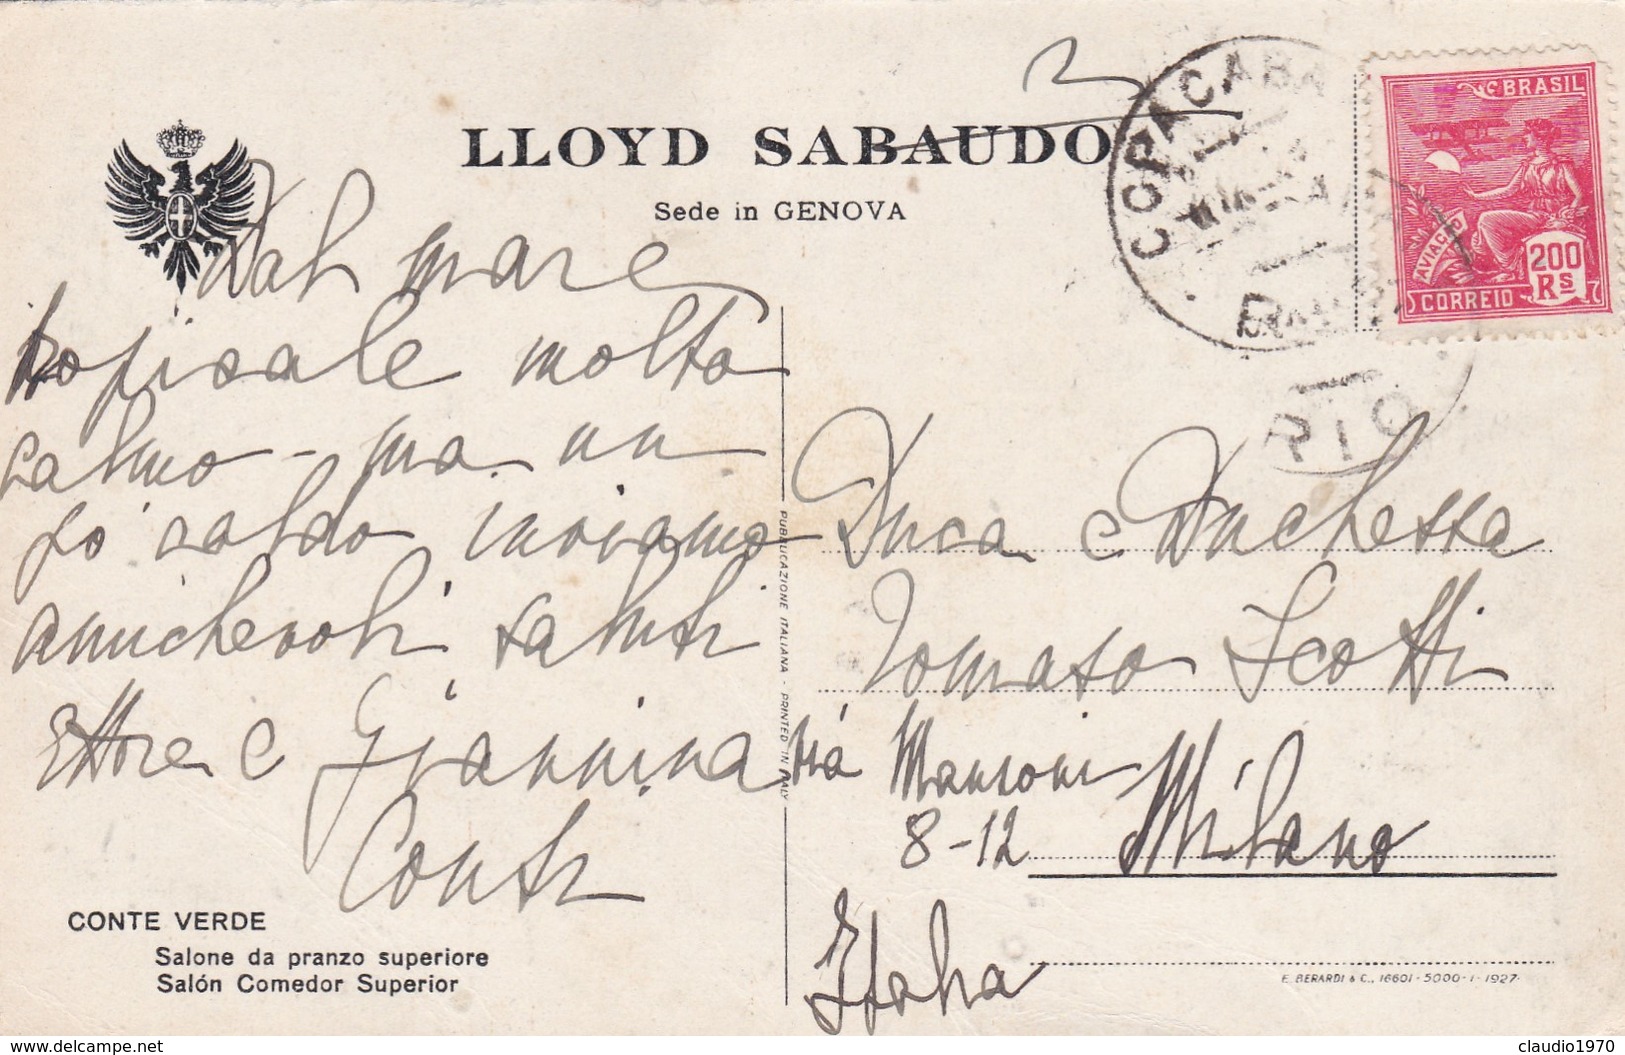 LLOYD SABAUDO
Sede in GENOVA
COPACABA
RIO
BRASIL
AVIAÇÃO
200
RS
CORREIO
Dal mare
tropicale molto
calmo - ma un
po' caldo inviamo
amichevoli saluti
Ettore e Giannina
Conti
CONTE VERDE
Salone da pranzo superiore
Salón Comedor Superior
PUBBLICAZIONE ITALIANA - PRINTED IN ITALY
Duca e Duchessa
Tommaso Scotti
Via Manzoni
8-12 Milano
Italia
E. BERARDI & C., 16601 - 5000-1-1927-
delcampe.net
claudio1970